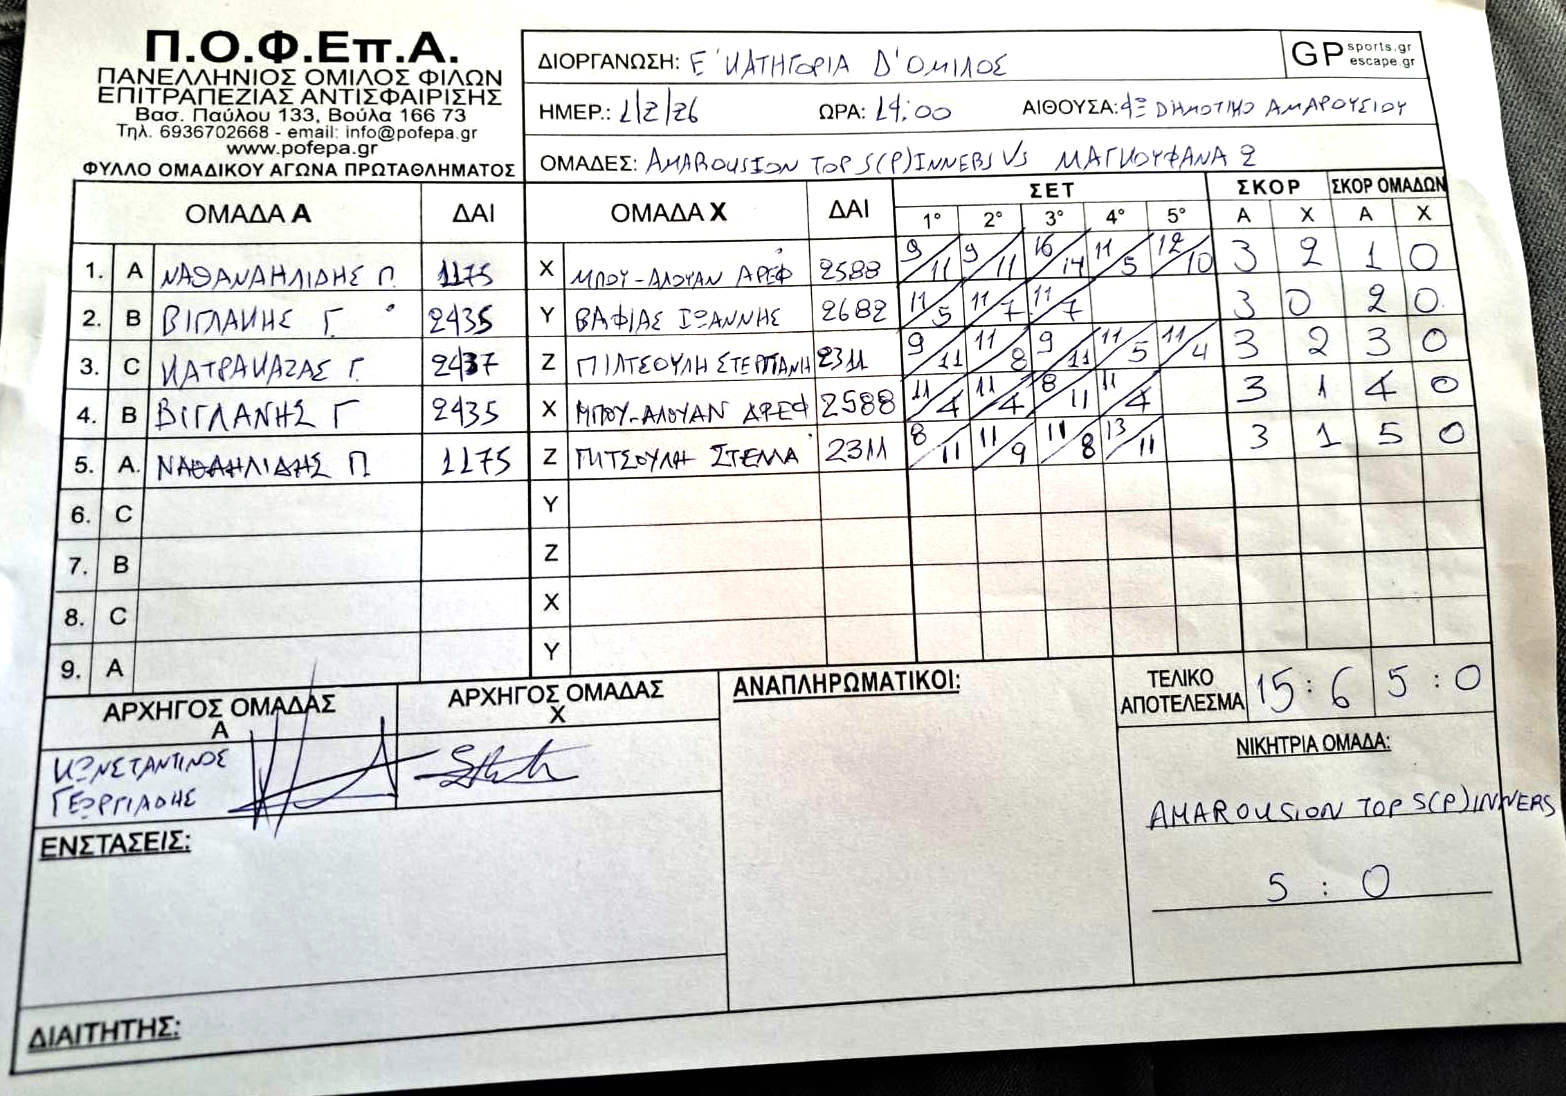 Π.Ο.Φ.Επ.Α.
ΠΑΝΕΛΛΗΝΙΟΣ ΟΜΙΛΟΣ ΦΙΛΩΝ
ΕΠΙΤΡΑΠΕΖΙΑΣ ΑΝΤΙΣΦΑΙΡΙΣΗΣ
Βασ. Παύλου 133, Βούλα 166 73
Τηλ. 6936702668 - email: info@pofepa.gr
www.pofepa.gr
ΦΥΛΛΟ ΟΜΑΔΙΚΟΥ ΑΓΩΝΑ ΠΡΩΤΑΘΛΗΜΑΤΟΣ
ΔΙΟΡΓΑΝΩΣΗ: Ε' ΚΑΤΗΓΟΡΙΑ Δ' ΟΜΙΛΟΣ
GP sports.gr escape.gr
ΗΜΕΡ.: 1/2/26 ΩΡΑ: 14:00 ΑΙΘΟΥΣΑ: ΔΗΜΟΤΙΚΟ ΑΜΑΡΟΥΣΙΟΥ
ΟΜΑΔΕΣ: AMAROUSION TOP S(P)INNERS VS ΜΑΓΚΟΥΦΑΝΑ 2
ΟΜΑΔΑ Α ΔΑΙ ΟΜΑΔΑ Χ ΔΑΙ ΣΕΤ ΣΚΟΡ ΣΚΟΡ ΟΜΑΔΩΝ
1° 2° 3° 4° 5° Α Χ Α Χ
1. A ΝΑΘΑΝΑΗΛΙΔΗΣ Π. 1175 X ΜΠΟΥ-ΑΛΟΥΑΝ ΑΡΕΦ 2588 9/11 9/11 16/14 11/5 12/10 3 2 1 0
2. B ΒΙΓΛΑΚΗΣ Γ. 2435 Y ΒΑΦΙΑΣ ΙΩΑΝΝΗΣ 2682 11/5 11/7 11/7 3 0 2 0
3. C ΚΑΤΡΑΚΑΖΑΣ Γ. 2437 Z 2311 9/11 11/8 9/11 11/5 11/4 3 2 3 0
4. B ΒΙΓΛΑΝΗΣ Γ 2435 X ΜΠΟΥ-ΑΛΟΥΑΝ ΑΡΕΦ 2588 11/4 11/4 8/11 11/4 3 1 4 0
5. A. ΝΑΘΑΗΛΙΔΗΣ Π 1175 Z ΠΙΤΣΟΥΛΗ ΣΤΕΛΛΑ 2311 8/11 11/9 11/8 13/11 3 1 5 0
6. C Y
7. B Z
8. C X
9. A Y
ΑΡΧΗΓΟΣ ΟΜΑΔΑΣ Α ΑΡΧΗΓΟΣ ΟΜΑΔΑΣ Χ
ΚΩΝΣΤΑΝΤΙΝΟΣ
ΓΕΩΡΓΙΑΔΗΣ
ΑΝΑΠΛΗΡΩΜΑΤΙΚΟΙ:
ΤΕΛΙΚΟ ΑΠΟΤΕΛΕΣΜΑ 15 : 6 5 : 0
ΝΙΚΗΤΡΙΑ ΟΜΑΔΑ:
AMAROUSION TOP S(P)INNERS
5 : 0
ΕΝΣΤΑΣΕΙΣ:
ΔΙΑΙΤΗΤΗΣ: